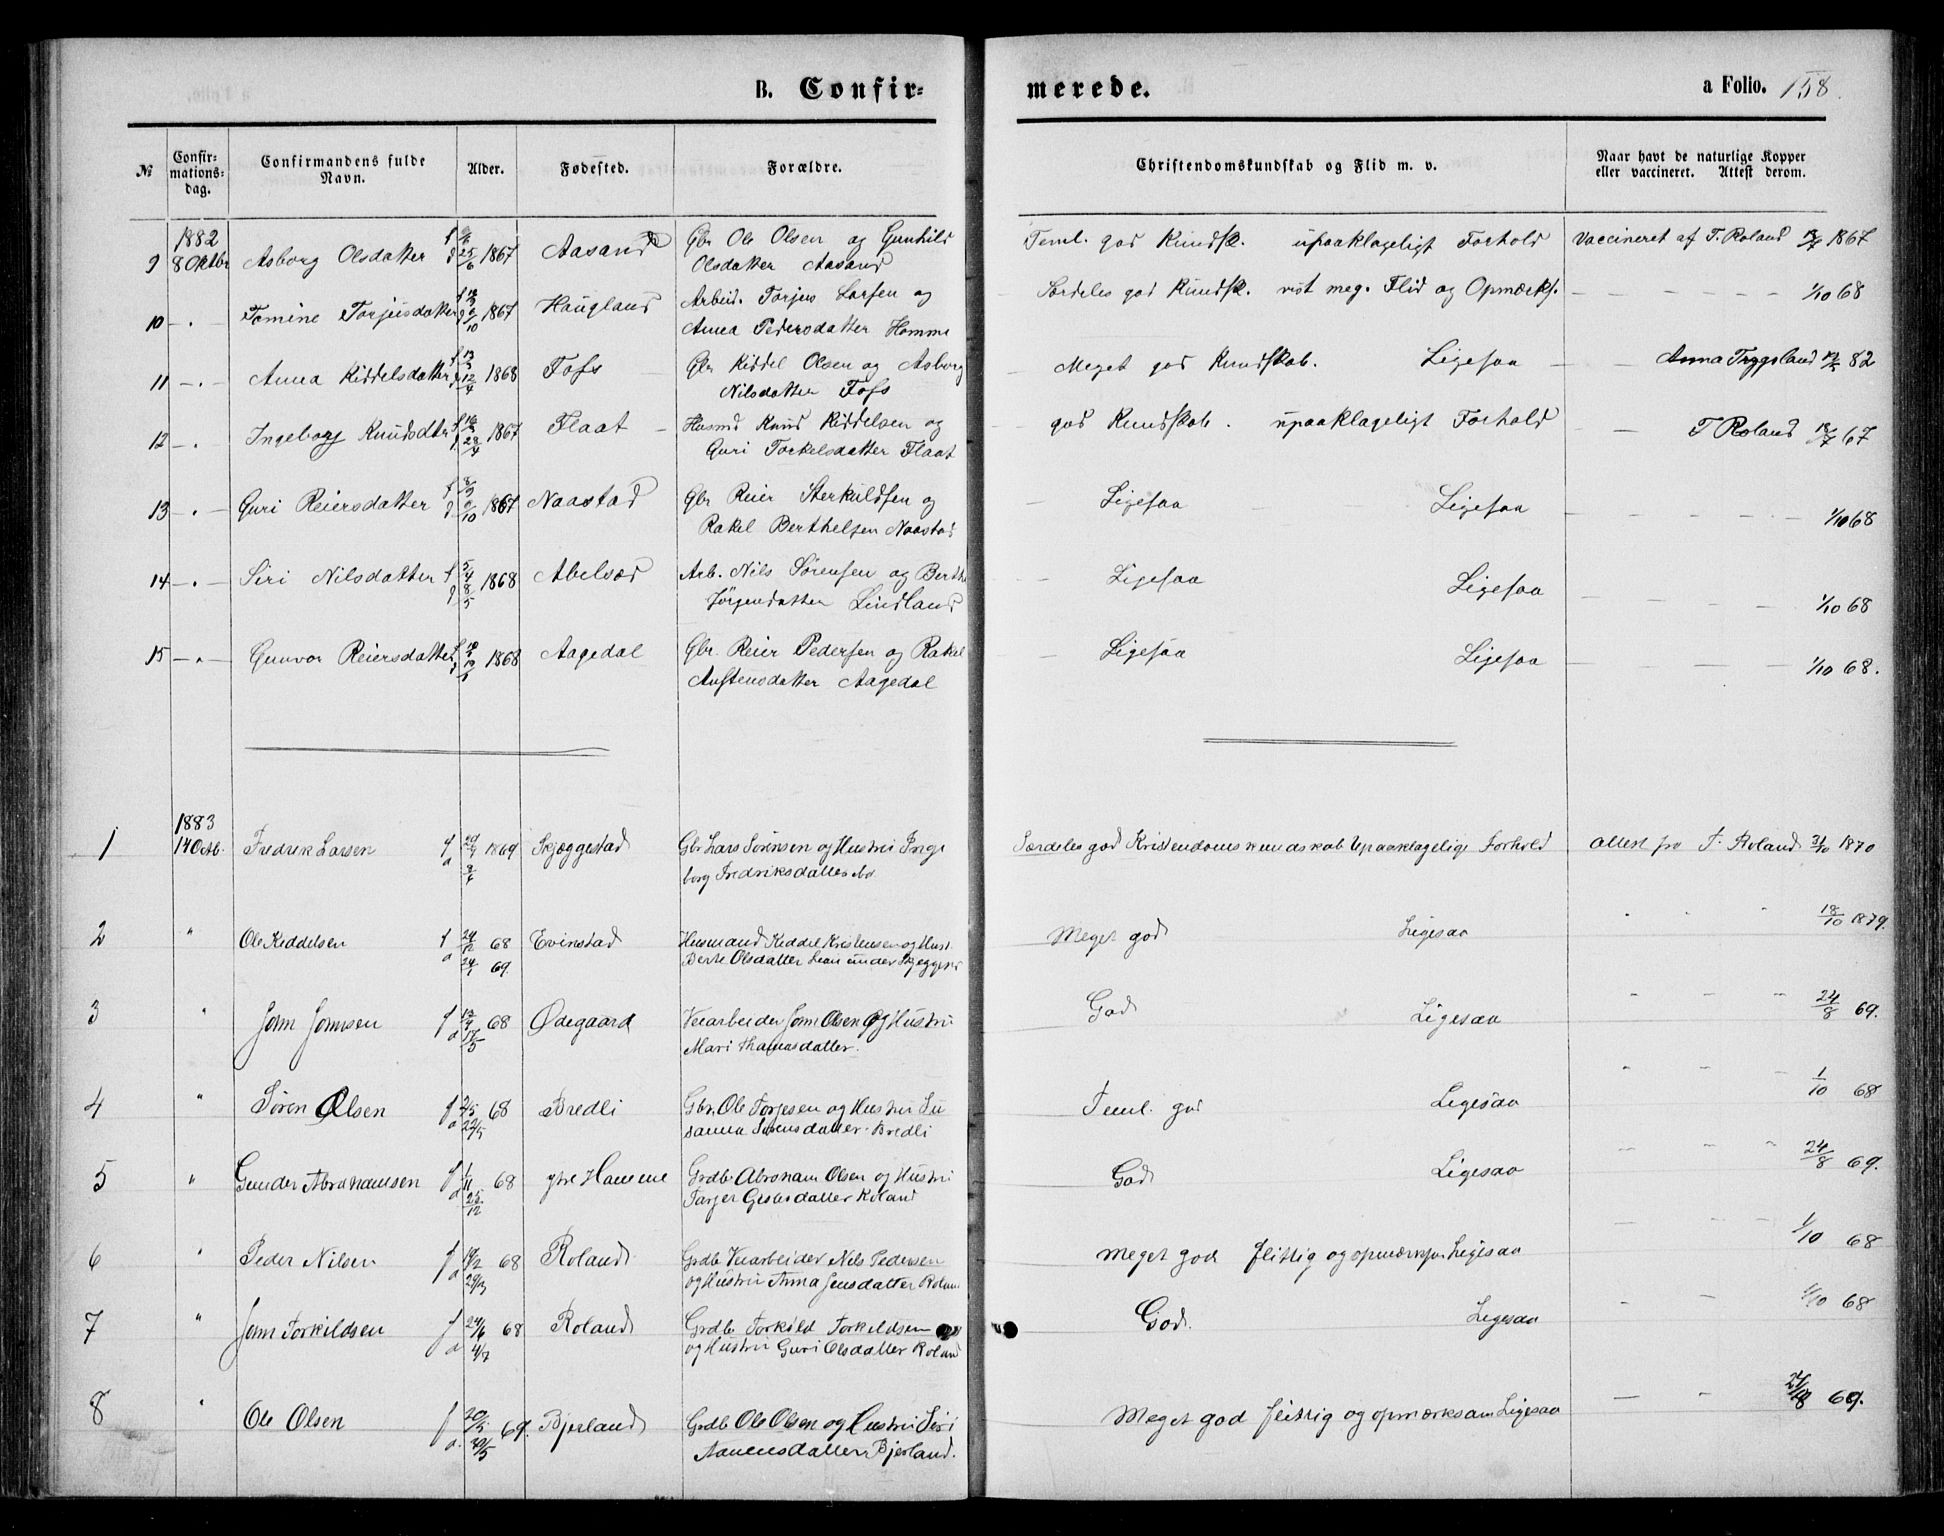 B. Confir-
merede.
a Folio. 158.
№
Confir-
mations-
dag.
Confirmandens fulde
Navn.
Alder.
Fødested.
Forældre.
Christendomskundskab og Flid m. v.
Naar havt de naturlige Kopper
eller vaccineret. Attest derom.
1882
9 8 Oktbr Asborg Olsdatter f d 25/6 1867 Aasand Gbr Ole Olsen og Gunhild
Olsdatter Aasand
Teml. god Kundsk. upaaklageligt Forhold Vaccineret af T. Roland 1867
10 - . - Tomine Torjusdatter f 1867 Haugland Arbeid. Torjus Larsen og
Anna Pedersdatter Homme
Særdeles god Kundsk. vist meg. Flid og Opmærks. - - - - 1/10 68
11 - . - Anna Kiddelsdatter f 12/4 1868 Tofs Gbr Kiddel Olsen og Asborg
Nilsdatter Tofs
- Meget god Kundskab. Ligesaa - Anna Trygsland 82
12 - . Ingeborg Knudsdtr f 28/4 1867 Flaat - Husmd Knud Kiddelsen og
Guri Torkelsdatter Flaat
god Kundskab. upaaklageligt Forhold - - T Roland 67
13 - . - Guri Reiersdatter f 1867 Naastad Gbr Reier Sterkuldsen og
Rakel Berthelsen Naastad
- Ligesaa Ligesaa - - - - - 1/10 68
14 - . - Siri Nilsdatter f 5/4 8/5 1868 Abelsæd Arb. Nils Sørensen og Berthe
Jørgensdatter Lindland
- Ligesaa Ligesaa - - - - 1/10 68
15 - . - Gunvor Reiersdatter 1868 Aagedal Gbr. Reier Pedersen og Rakel
Austensdatter Aagedal
Ligesaa Ligesaa - - - - 1/10 68.
1883
1 14 Octb. Fredrik Larsen f d 1869 Skjæggestad Gbr Lars Sørensen og Hustru Inge
borg Fredriksdatter
Særdeles god Kristendomskundskab Upaaklagelige Forhold Attest fra T. Roland 31/10 1870
2 " Ole Keddelsen f 29/12 68 Evinstad Husmand Keddel Kristensen og Hust.
d 24/1 69. Berte Olsdatter
Meget god Ligesaa " " 18/10 1879.
3 " John Johnsen f 68 Ødegaard Veiarbeider John Olsen og Hustru
d 17/5 Mari Thomasdatter.
God Ligesaa " " " 24/8 69.
4 " Søren Olsen f 2/5 68 Bredli Gbr. Ole Torjesen og Hustru Su
d 22/5 sanna Sørensdatter Bredli
Teml. god Ligesaa " " 1/10 68
5 " Gunder Abrahamsen f 1/11 68 ytre Homme Grdb Abraham Olsen og Hustru
d 25/12 Roland
God Ligesaa " " " 24/8 69.
6 " Peder Nilsen f 19/2 68 Roland Grdb Veiarbeider Nils Pedersen
d 29/3 og Hustru Anna Jensdatter Roland
Meget god flittig og opmærksom Ligesaa - " - 1/10 68
7 " John Torkildsen f 24/6 68 Roland Grdb Torkild Torkildsen
d 4/7 og Hustru Guri Olsdatter Roland
God. Ligesaa - " 1/10 68
8 " Ole Olsen f 20/5 69. Bjerland Grdb Ole Olsen og Hustru Siri
d. 30/5 Aanensdatter Bjerland.
Meget god flittig og opmærksom Ligesaa - " - 69.